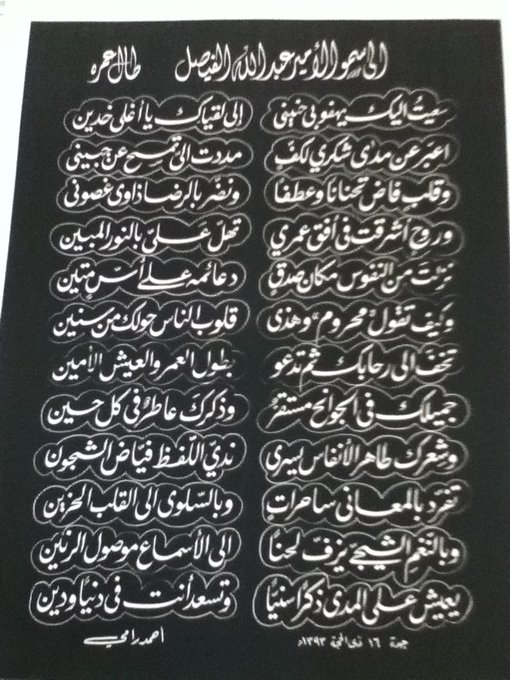 الى سمو الأمير عبد الله الفيصل طال عمره
سعيتُ اليك يهفو بى حنينى إلى لقياك يا أغلى خدين
اعبّر عن مدى شكرى لكفٍّ مددت الى تمسح عن جبينى
وقلب فاض تحنانًا وعطفًا ونضّر بالرضا ذاوى غصونى
وروحٍ اشرقت فى أفق عمرى تهلّ علىّ بالنور المبين
نزلتَ من النفوس مكان صدقٍ دعائمه على أسٍّ متين
وكيف تقول "محروم" وهذى قلوب الناس حولك من سنين
تخفّ الى رحابك ثم تدعو بطول العمر والعيش الأمين
جميلك فى الجوانح مستقرٌّ وذكرك عاطرٌ فى كل حين
وشعرك طاهر الأنفاس يسرى نديّ اللفظ فيّاض الشجون
تفرّد بالمعانى ساحراتٍ وبالسّلوى الى القلب الحزين
وبالنغم الشجىّ يزفّ لحنًا الى الأسماع موصول الرنين
يعيش على المدى ذكرًا سنيًّا وتسعد أنت فى دنيا ودين
جدة ١٦ ذى الحجة ١٣٩٣هـ احمد رامى